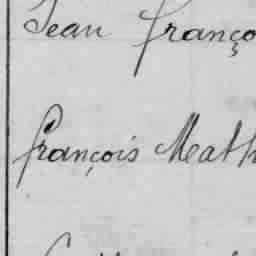 Jean Franço
François Math